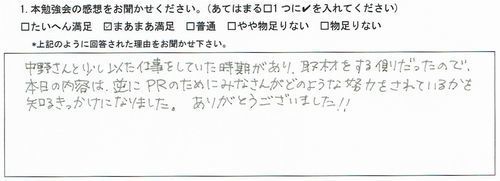 1. 本勉強会の感想をお聞かせください。(あてはまる□1つに✔を入れてください)
□たいへん満足 ☑まあまあ満足 □普通 □やや物足りない □物足りない
*上記のように回答された理由をお聞かせ下さい。
中野さんと少し似た仕事をしていた時期があり、取材をする側だったので、
本日の内容は、逆にPRのためにみなさんがどのような努力をされているかを
知るきっかけになりました。 ありがとうございました!!